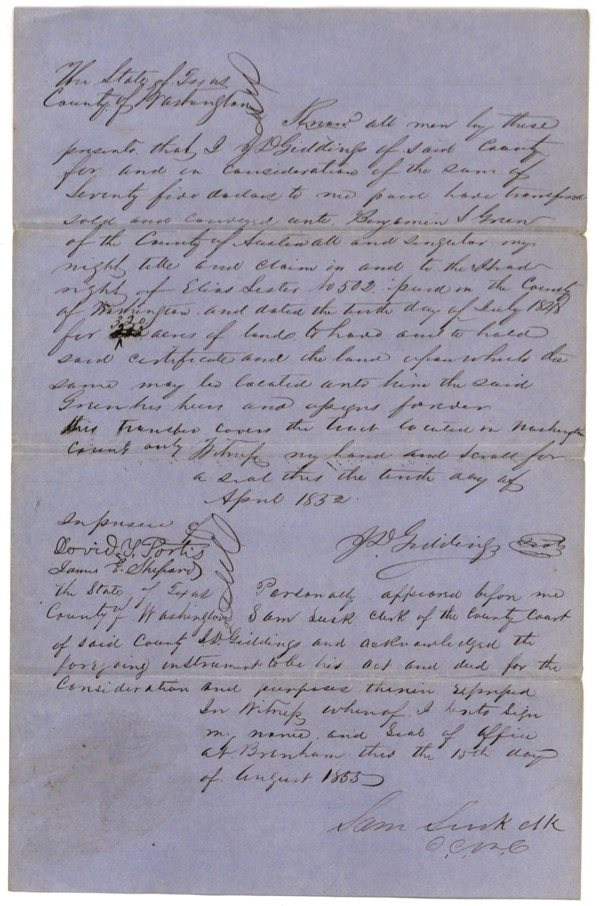 The State of Texas
County of Washington
Know all men by these
presents that I J D Giddings of said County
for and in Consideration of the sum of
Seventy five dollars to me paid have transferd
sold and conveyed unto Benjamin S Green
of the County of Austin all and singular my
right title and claim in and to the Head
right of Elias Lester No 502 in the County
of Washington and dated the tenth day of July
for 320 acres of land to have and to hold
said certificate and the land upon which the
same may be located unto him the said
Green his heirs and assigns forever
this transfer covers the tract located in Washington
County only Witness my hand and Scroll for
a seal this the tenth day of
April 1832
In presence of
David Y. Portis
James E. Shepard
J D Giddings Seal
The State of Texas
County of Washington
Personally appeared before me
Sam Lusk clerk of the County Court
of said County J D Giddings and acknowledged the
foregoing instrument to be his act and deed for the
Consideration and purposes therein Expressed
In Witness whereof I hereto Sign
my name and Seal of office
at Brenham this the 15th day
of August 1855
Sam Lusk clk
C.C.W.C